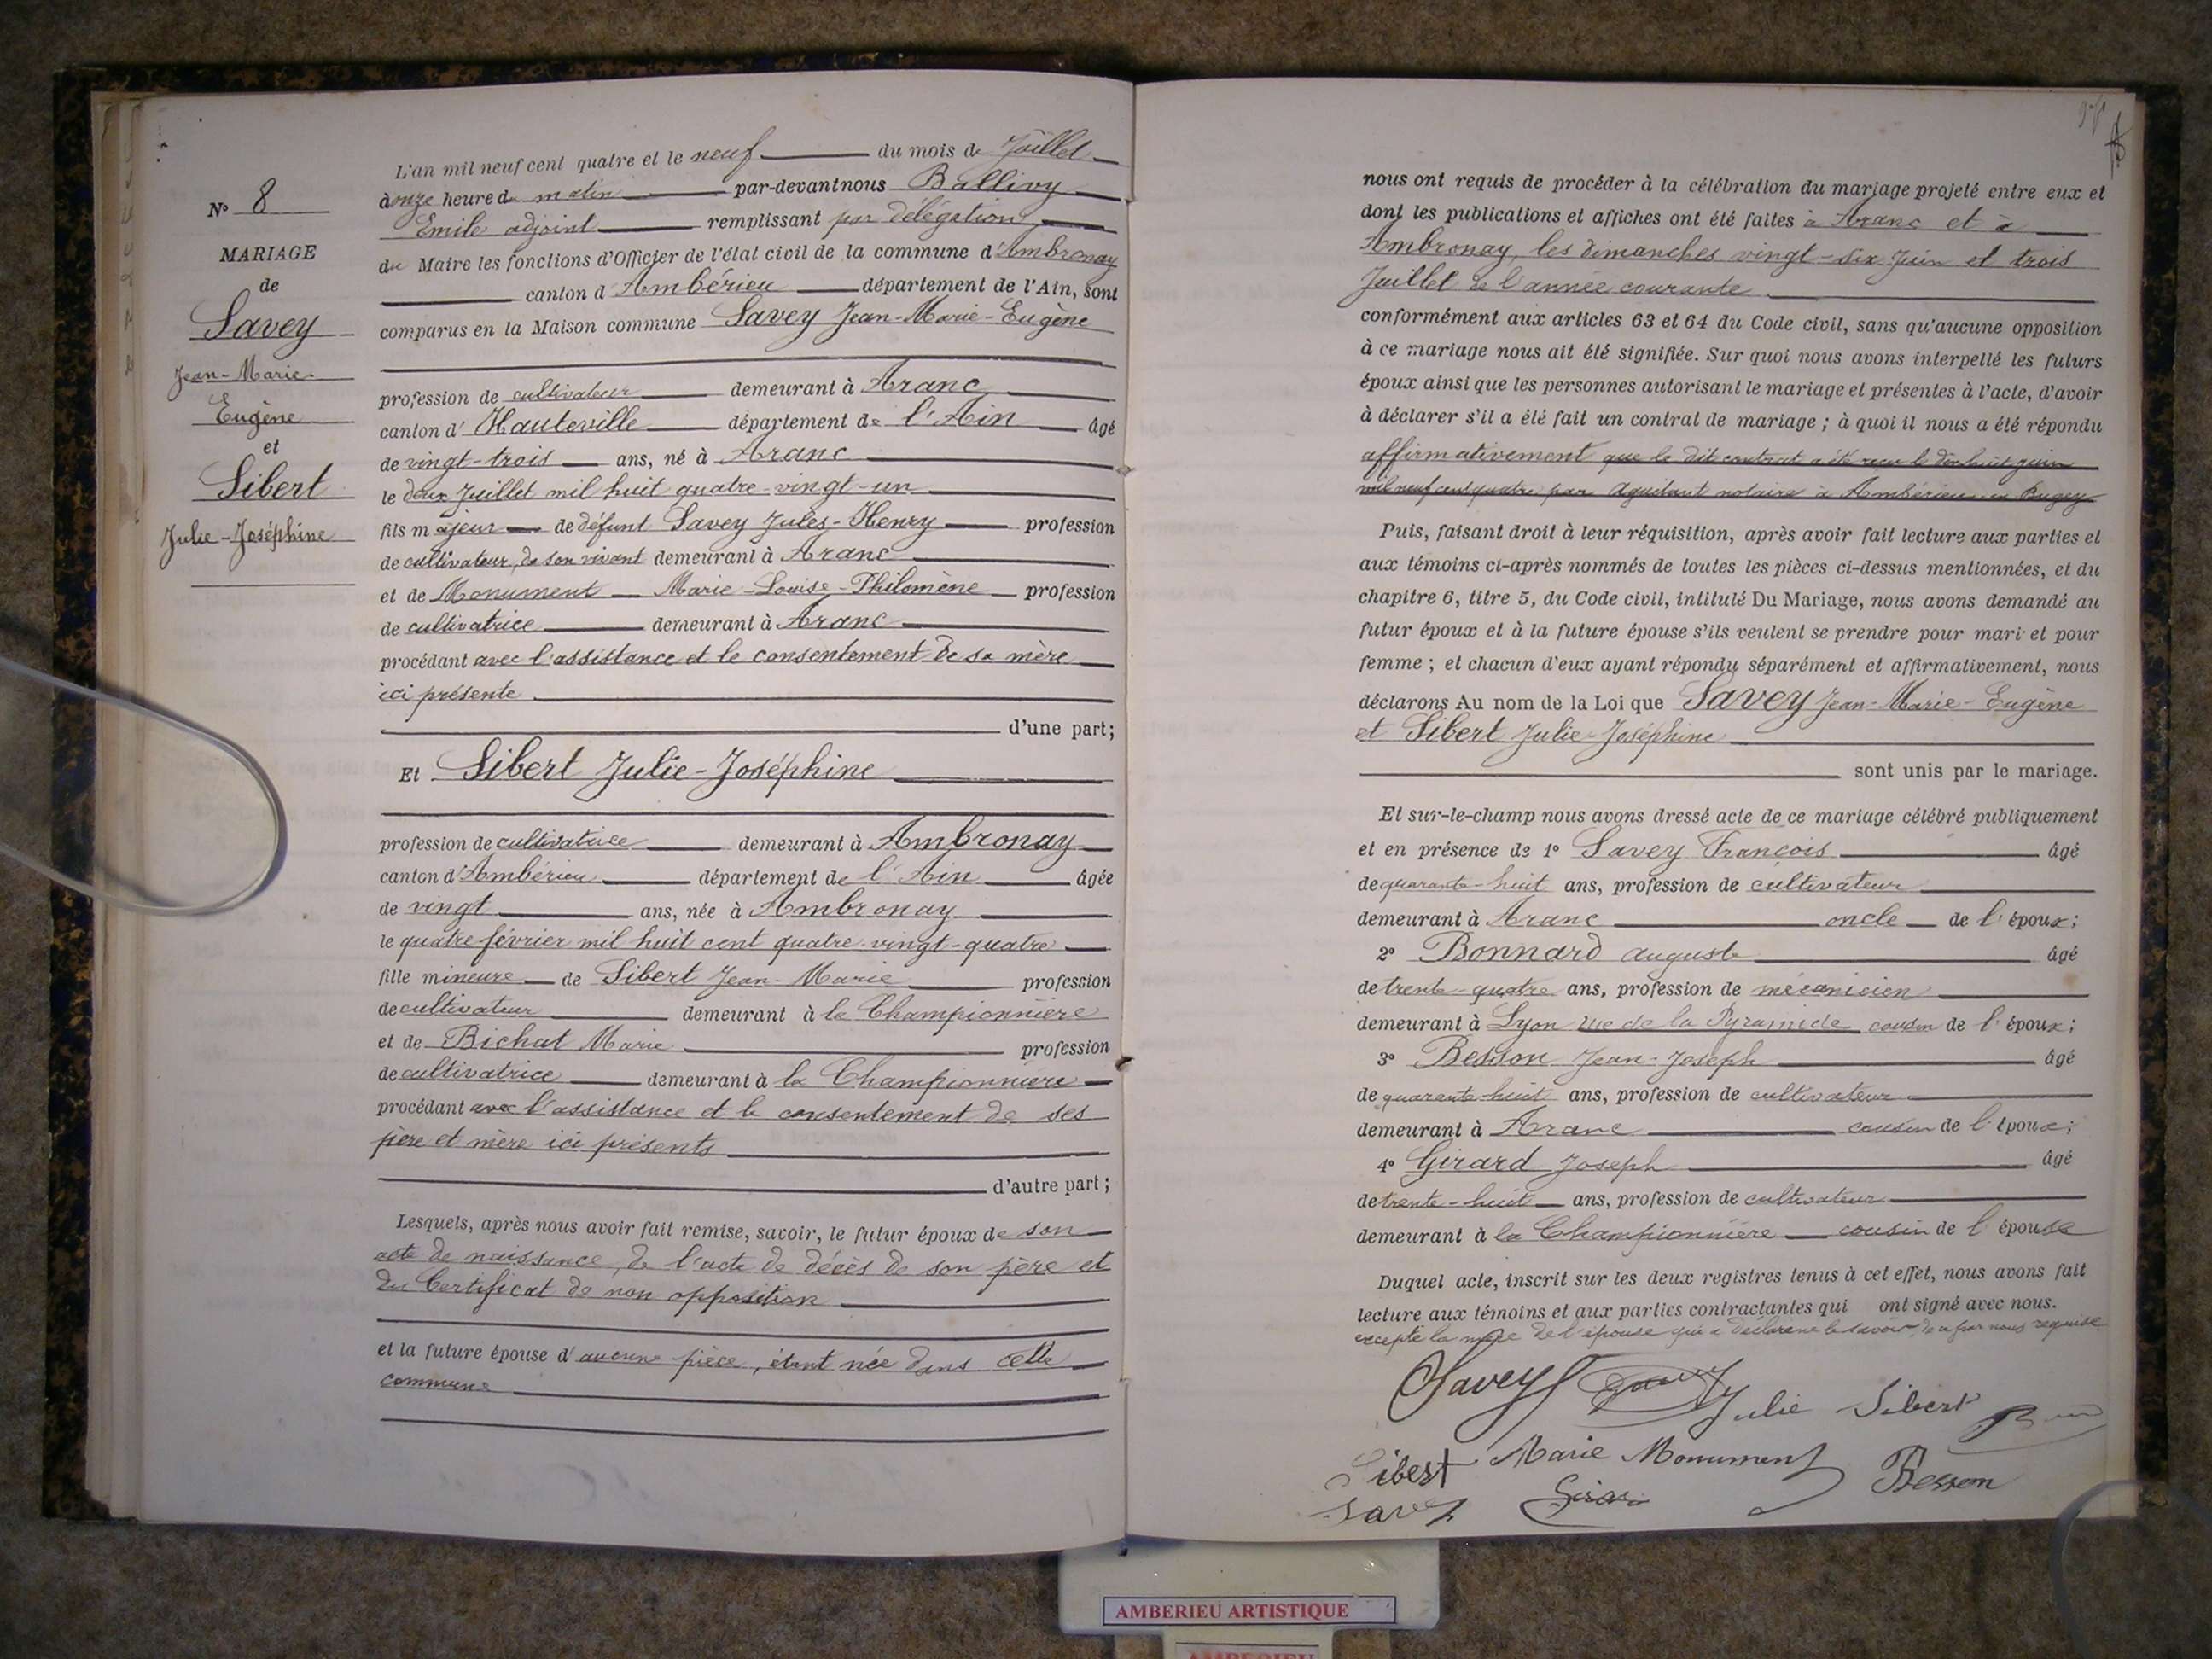 N° 8
MARIAGE
de
Savey
Jean-Marie-
Eugène
et
Sibert
Julie-Joséphine
L'an mil neuf cent quatre et le neuf du mois de Juillet
à onze heure du matin par-devant nous Ballivy
Emile adjoint remplissant par délégation
du Maire les fonctions d'Officier de l'état civil de la commune d'Ambronay
canton d'Ambérieu département de l'Ain, sont
comparus en la Maison commune Savey Jean-Marie-Eugène
profession de cultivateur demeurant à Aranc
canton d'Hauteville département de l'Ain âgé
de vingt-trois ans, né à Aranc
le deux Juillet mil huit quatre-vingt-un
fils majeur de défunt Savey Jules-Henry profession
de cultivateur, de son vivant demeurant à Aranc
et de Monument Marie-Louise-Philomène profession
de cultivatrice demeurant à Aranc
procédant avec l'assistance et le consentement de sa mère
ici présente
d'une part;
Et Sibert Julie-Joséphine
profession de cultivatrice demeurant à Ambronay
canton d'Ambérieu département de l'Ain âgée
de vingt ans, née à Ambronay
le quatre février mil huit cent quatre-vingt-quatre
fille mineure de Sibert Jean-Marie profession
de cultivateur demeurant à la Championnière
et de Bichat Marie profession
de cultivatrice demeurant à la Championnière
procédant avec l'assistance et le consentement de ses
père et mère ici présents
d'autre part;
Lesquels, après nous avoir fait remise, savoir, le futur époux de son
acte de naissance, de l'acte de décès de son père et
du Certificat de non opposition
et la future épouse d'aucune pièce, étant née dans cette
commune
nous ont requis de procéder à la célébration du mariage projeté entre eux et
dont les publications et affiches ont été faites à Aranc et à
Ambronay, les dimanches vingt-six Juin et trois
Juillet de l'année courante
conformément aux articles 63 et 64 du Code civil, sans qu'aucune opposition
à ce mariage nous ait été signifiée. Sur quoi nous avons interpellé les futurs
époux ainsi que les personnes autorisant le mariage et présentes à l'acte, d'avoir
à déclarer s'il a été fait un contrat de mariage; à quoi il nous a été répondu
affirmativement que le dit contrat a été reçu le dix huit juin
mil neuf cent quatre par Aguitant notaire à Ambérieu en Bugey
Puis, faisant droit à leur réquisition, après avoir fait lecture aux parties et
aux témoins ci-après nommés de toutes les pièces ci-dessus mentionnées, et du
chapitre 6, titre 5, du Code civil, intitulé Du Mariage, nous avons demandé au
futur époux et à la future épouse s'ils veulent se prendre pour mari et pour
femme; et chacun d'eux ayant répondu séparément et affirmativement, nous
déclarons Au nom de la Loi que Savey Jean-Marie-Eugène
et Sibert Julie-Joséphine
sont unis par le mariage.
Et sur-le-champ nous avons dressé acte de ce mariage célébré publiquement
et en présence de 1° Savey François âgé
de quarante-huit ans, profession de cultivateur
demeurant à Aranc oncle de l'époux;
2° Bonnard auguste âgé
de trente-quatre ans, profession de mécanicien
demeurant à Lyon rue de la Pyramide cousin de l'époux;
3° Besson Jean-Joseph âgé
de quarante-huit ans, profession de cultivateur
demeurant à Aranc cousin de l'époux;
4° Girard Joseph âgé
de trente-huit ans, profession de cultivateur
demeurant à la Championnière cousin de l'épouse
Duquel acte, inscrit sur les deux registres tenus à cet effet, nous avons fait
lecture aux témoins et aux parties contractantes qui ont signé avec nous.
excepté la mère de l'épouse qui a déclaré ne le savoir, de ce par nous requise
Savey Julie Sibert
Sibert Marie Monument Besson
Savey Girard
AMBERIEU ARTISTIQUE
AMBERIEU